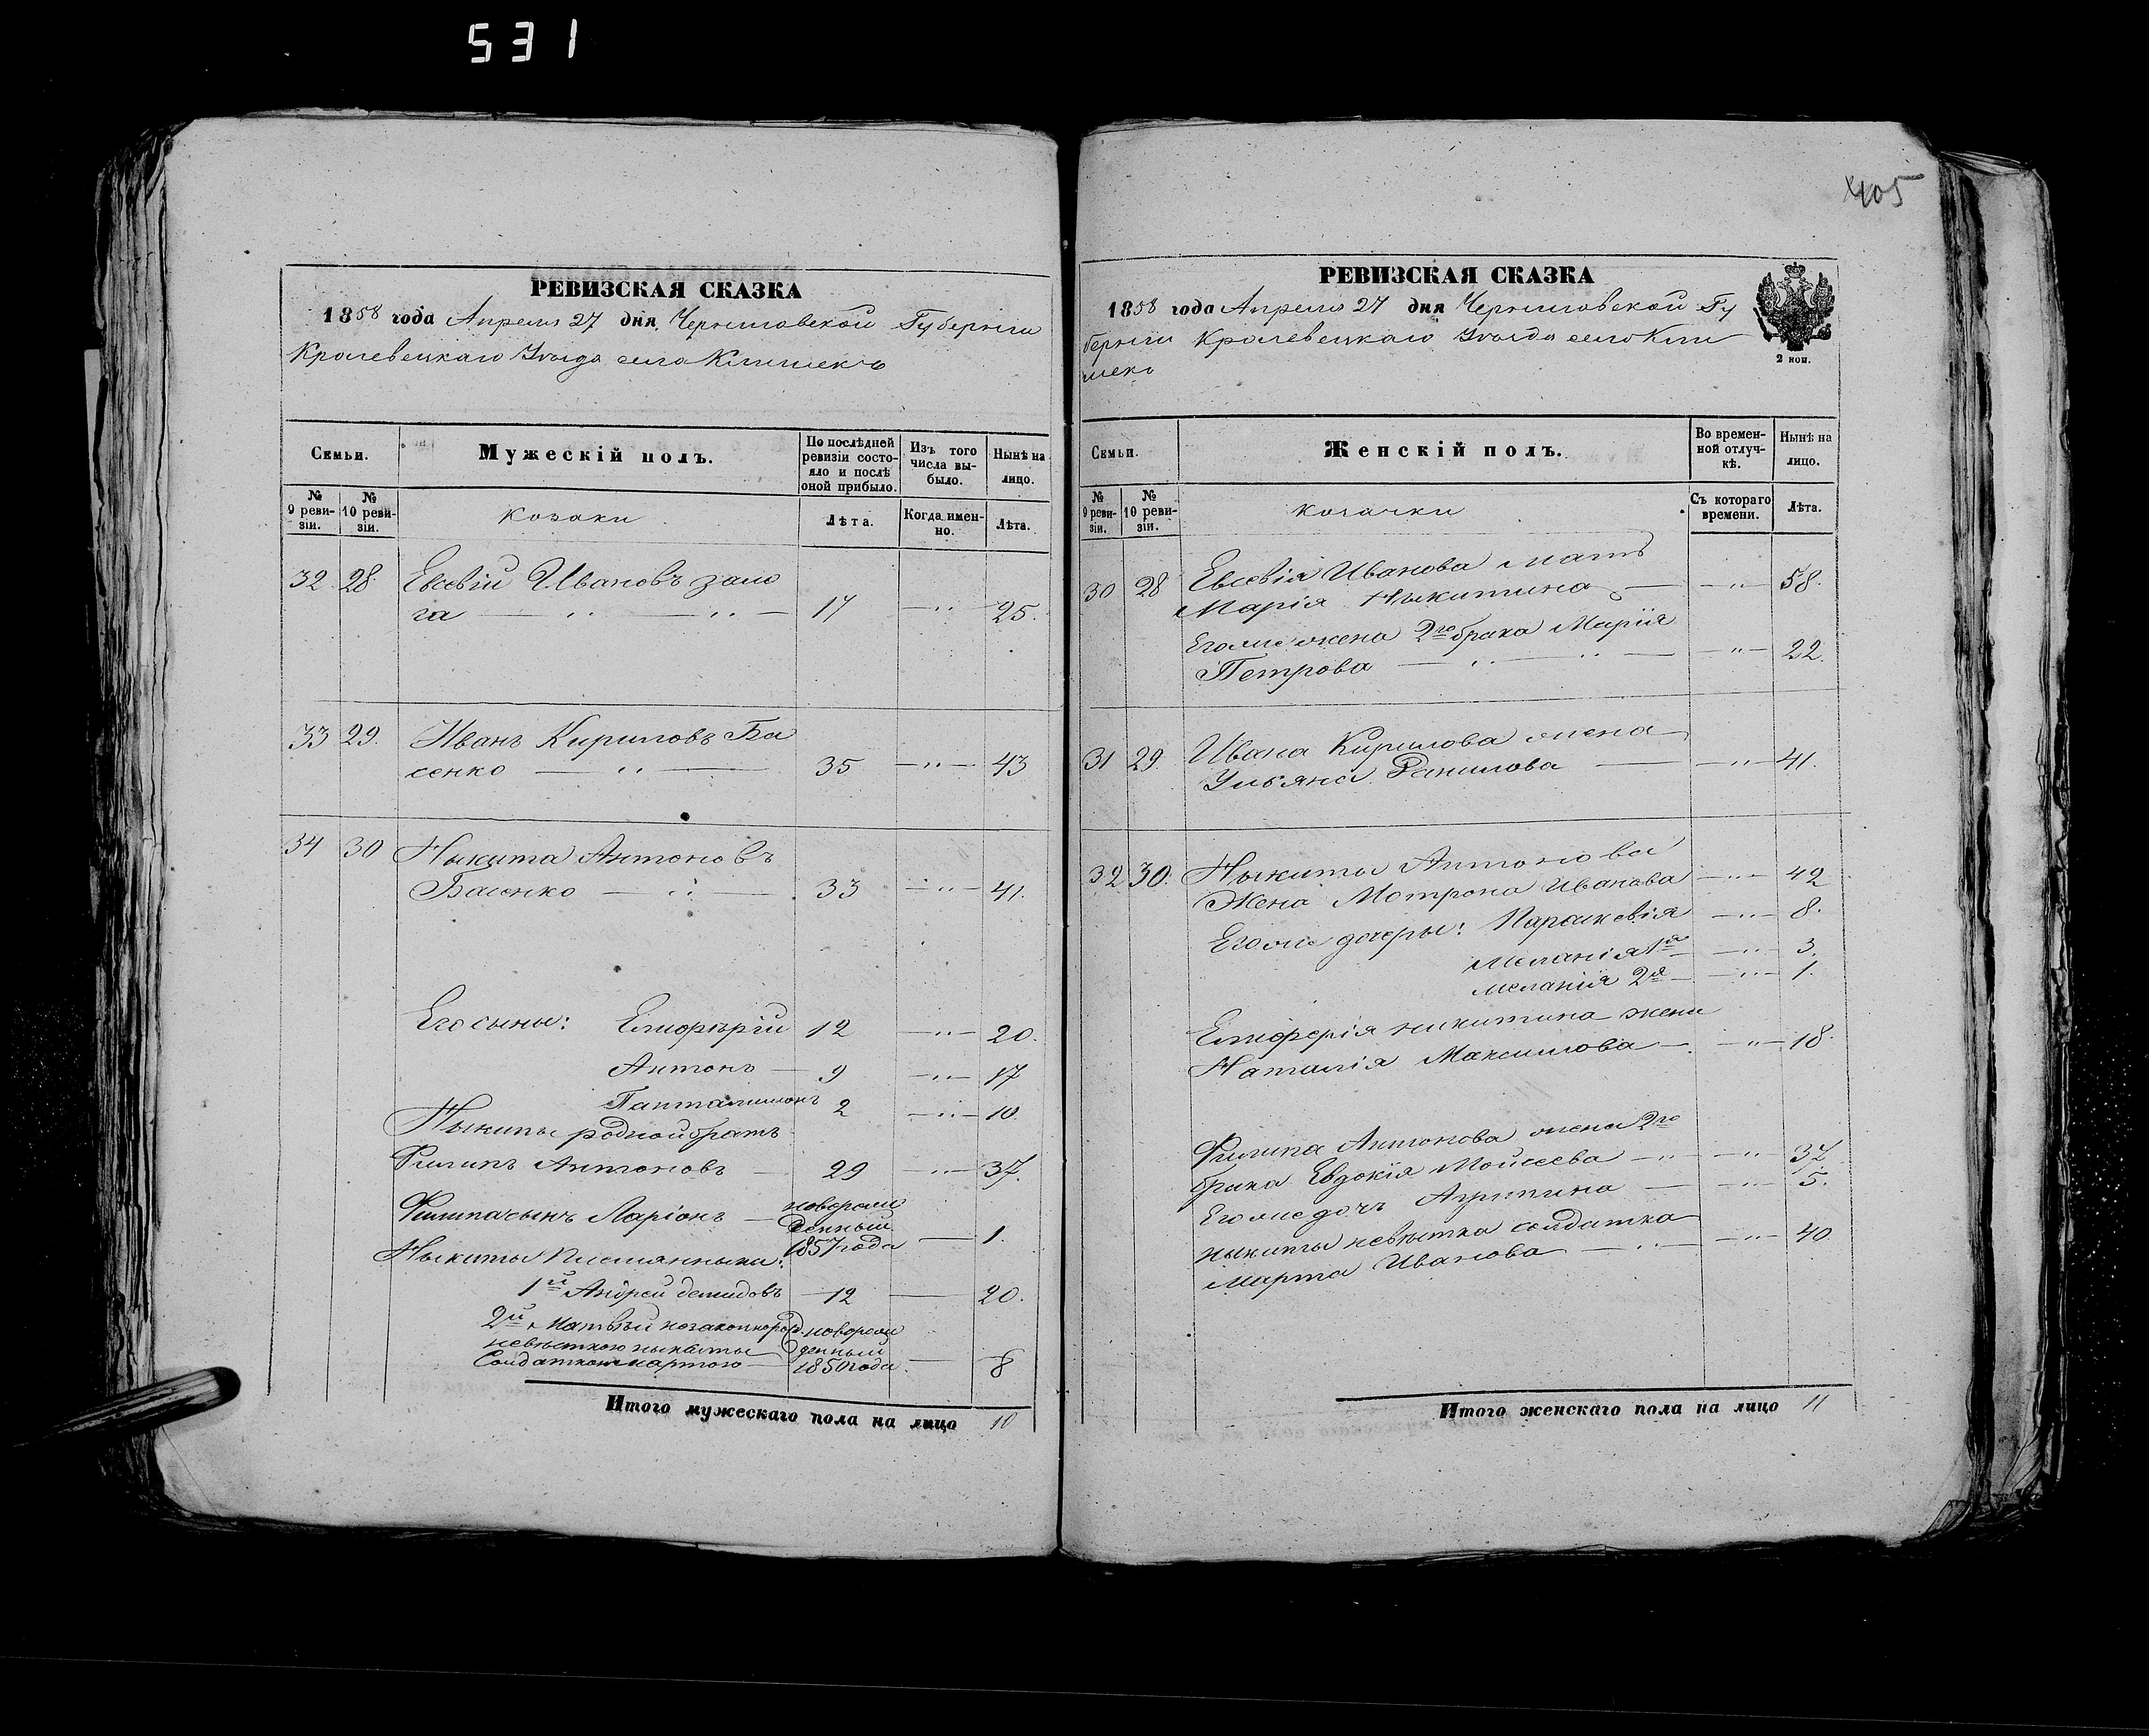 531
405
РЕВИЗСКАЯ СКАЗКА
1858 года Апреля 27 дня Черниговской Губернiи
Кролевецкаго Уѣзда села Клишекъ
Семьи.
Мужескій полъ.
По послѣдней ревизіи состояло и послѣ оной прибыло.
Изъ того числа выбыло.
Нынѣ на лицо.
№ 9 ревизіи.
№ 10 ревизіи.
козаки
Лѣта.
Когда именно.
Лѣта.
32 28 Евсевій Ивановъ зало
га 17 25.
33 29. Иванъ Кириловъ Ба
сенко 35 43
34 30 Ныкита Антоновъ
Басенко 33 41.
Его сыны: Елиферій 12 20.
Антонъ 9 17
Панталимонъ 2 10.
Ныкиты родной братъ
Филипъ Антоновъ 29 37.
Филипа сынъ Ларіонъ новорож
денный
1857 года 1.
Ныкиты племянныки:
1й Андрей демидовъ 12 20.
2й Матвѣй незаконнорожд. новорож
невѣсткою ныкиты денный
Солдаткою мартою 1850 года 8
Итого мужескаго пола на лицо 10
РЕВИЗСКАЯ СКАЗКА
1858 года Апреля 27 дня Черниговской Гу
бернiи Кролевецкаго Уѣзда села Кли
шекъ
2 коп.
Семьи.
Женскій полъ.
Во временной отлучкѣ.
Нынѣ на лицо.
№ 9 ревизіи.
№ 10 ревизіи.
козачки
Съ котораго времени.
Лѣта.
30 28 Евсевія Иванова мать
Марія Ныкитина 58.
Его же жена 2го брака Марія
Петрова 22.
31 29. Ивана Кирилова жена
Ульяна Данилова 41.
32 30. Ныкиты Антонова
Жена Мотрона Иванова 42
Его же дочеры: Параскевія 8.
Меланія 1я 3.
Меланія 2я 1.
Елиферія никитина жена
Наталія Максимова 18.
Филипа Антонова жена 2го
брака Евдокія Моисеева 37
Его же дочь Агрипина 5.
ныкиты невѣстка солдатка
Марта Иванова 40
Итого женскаго пола на лицо 11